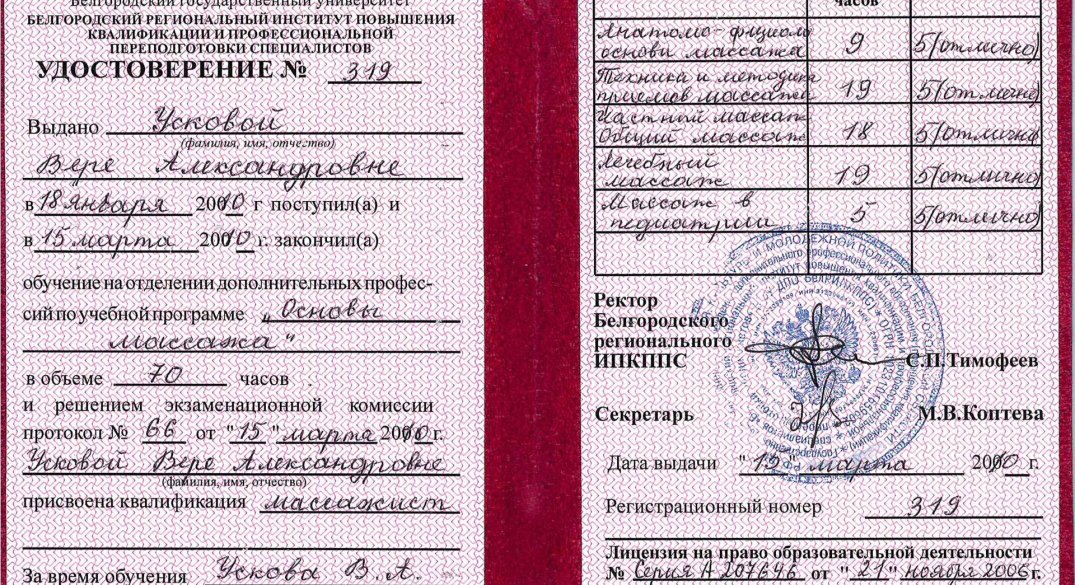 Белгородский государственный университет
БЕЛГОРОДСКИЙ РЕГИОНАЛЬНЫЙ ИНСТИТУТ ПОВЫШЕНИЯ
КВАЛИФИКАЦИИ И ПРОФЕССИОНАЛЬНОЙ
ПЕРЕПОДГОТОВКИ СПЕЦИАЛИСТОВ
УДОСТОВЕРЕНИЕ № 319
Выдано Усковой
(фамилия, имя, отчество)
Вере Александровне
в 18 января 2010 г поступил(а) и
в 15 марта 2010 г. закончил(а)
обучение на отделении дополнительных профес-
сий по учебной программе „Основы
массажа"
в объеме 70 часов
и решением экзаменационной комиссии
протокол № 66 от "15" марта 2010 г.
Усковой Вере Александровне
(фамилия, имя, отчество)
присвоена квалификация массажист
За время обучения Ускова В.А.
часов
Анатомо-физиоло
основы массажа 9 5(отлично)
Техника и методика
приемов массажа 19 5(отлично)
Частный массаж
Общий массаж 18 5(отлично)
Лечебный
массаж 19 5(отлично)
Массаж в
педиатрии 5 5(отлично)
Ректор
Белгородского
регионального
ИПКППС С.П.Тимофеев
Секретарь М.В.Коптева
Дата выдачи "15" марта 2010 г.
Регистрационный номер 319
Лицензия на право образовательной деятельности
№ Серия А 207696 от "21" ноября 2006 г.